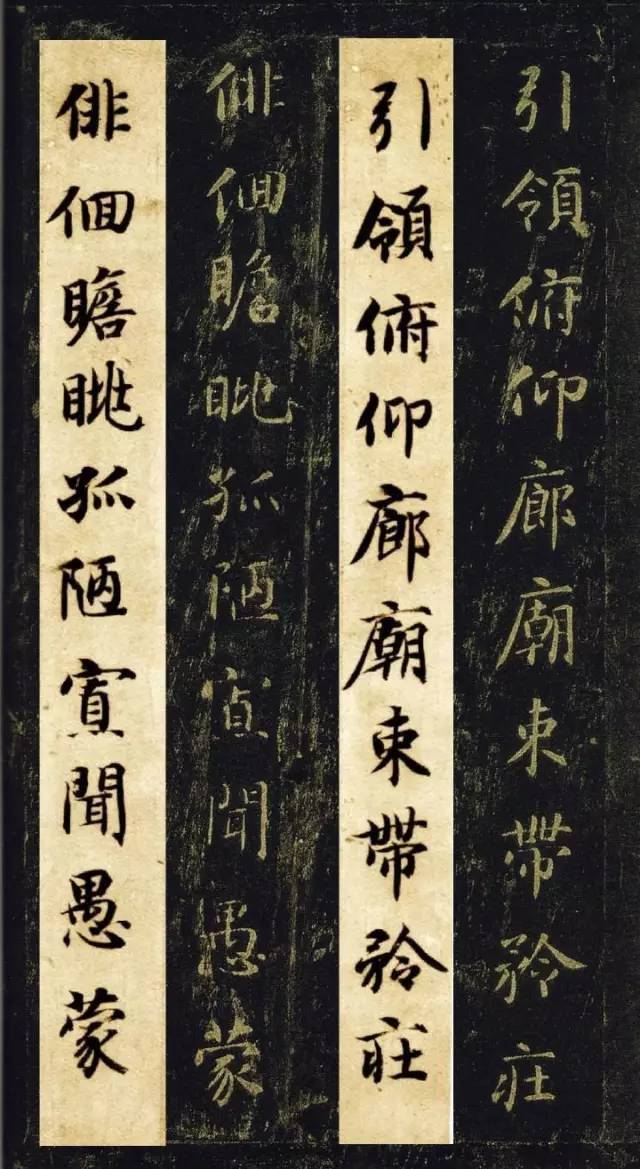 引領俯仰廊廟束帶矜庄
引領俯仰廊廟束帶矜庄
俳佪瞻眺孤陋寡聞愚蒙
俳佪瞻眺孤陋寡聞愚蒙